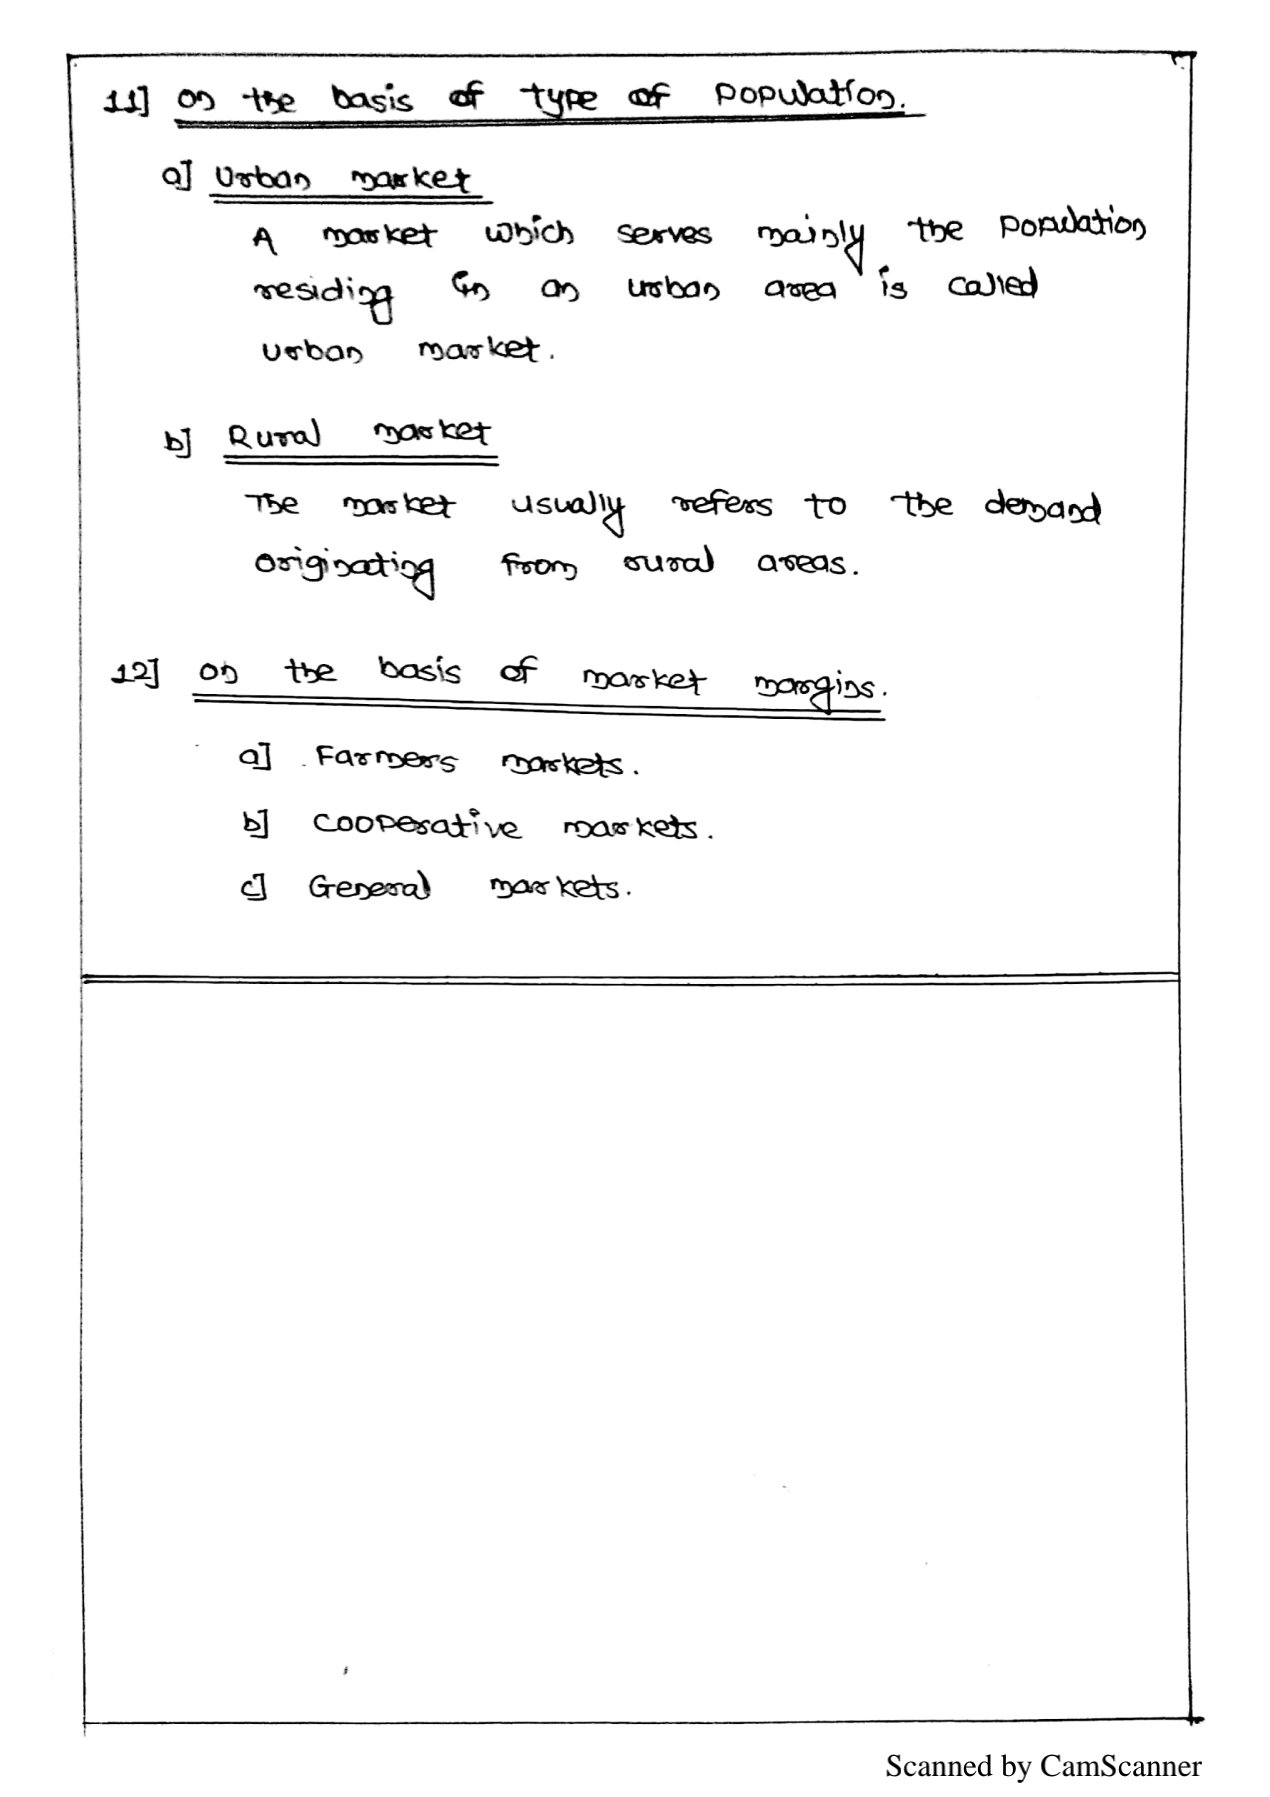 11] on the basis of type of population.
a] Urban market
A market which serves mainly the population
residing in an urban area is called
urban market.
b] Rural market
The market usually refers to the demand
originating from rural areas.
12] on the basis of market margins.
a] Farmers markets.
b] cooperative markets.
c] General markets.
Scanned by CamScanner